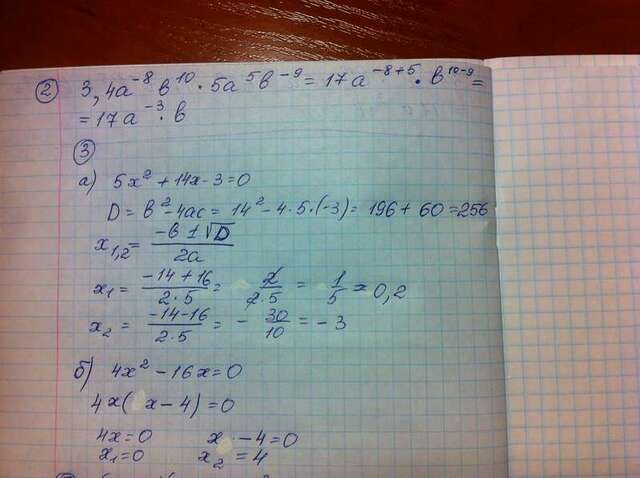 ② 3,4a⁻⁸b¹⁰ · 5a⁵b⁻⁹ = 17a⁻⁸⁺⁵ · b¹⁰⁻⁹ =
= 17a⁻³ · b
③
а) 5x² + 14x - 3 = 0
D = b² - 4ac = 14² - 4·5·(-3) = 196 + 60 = 256
x₁,₂ = (-b ± √D)/(2a)
x₁ = (-14 + 16)/(2·5) = 2/(2·5) = 1/5 = 0,2
x₂ = (-14 - 16)/(2·5) = - 30/10 = -3
б) 4x² - 16x = 0
4x(x - 4) = 0
4x = 0 x - 4 = 0
x₁ = 0 x₂ = 4